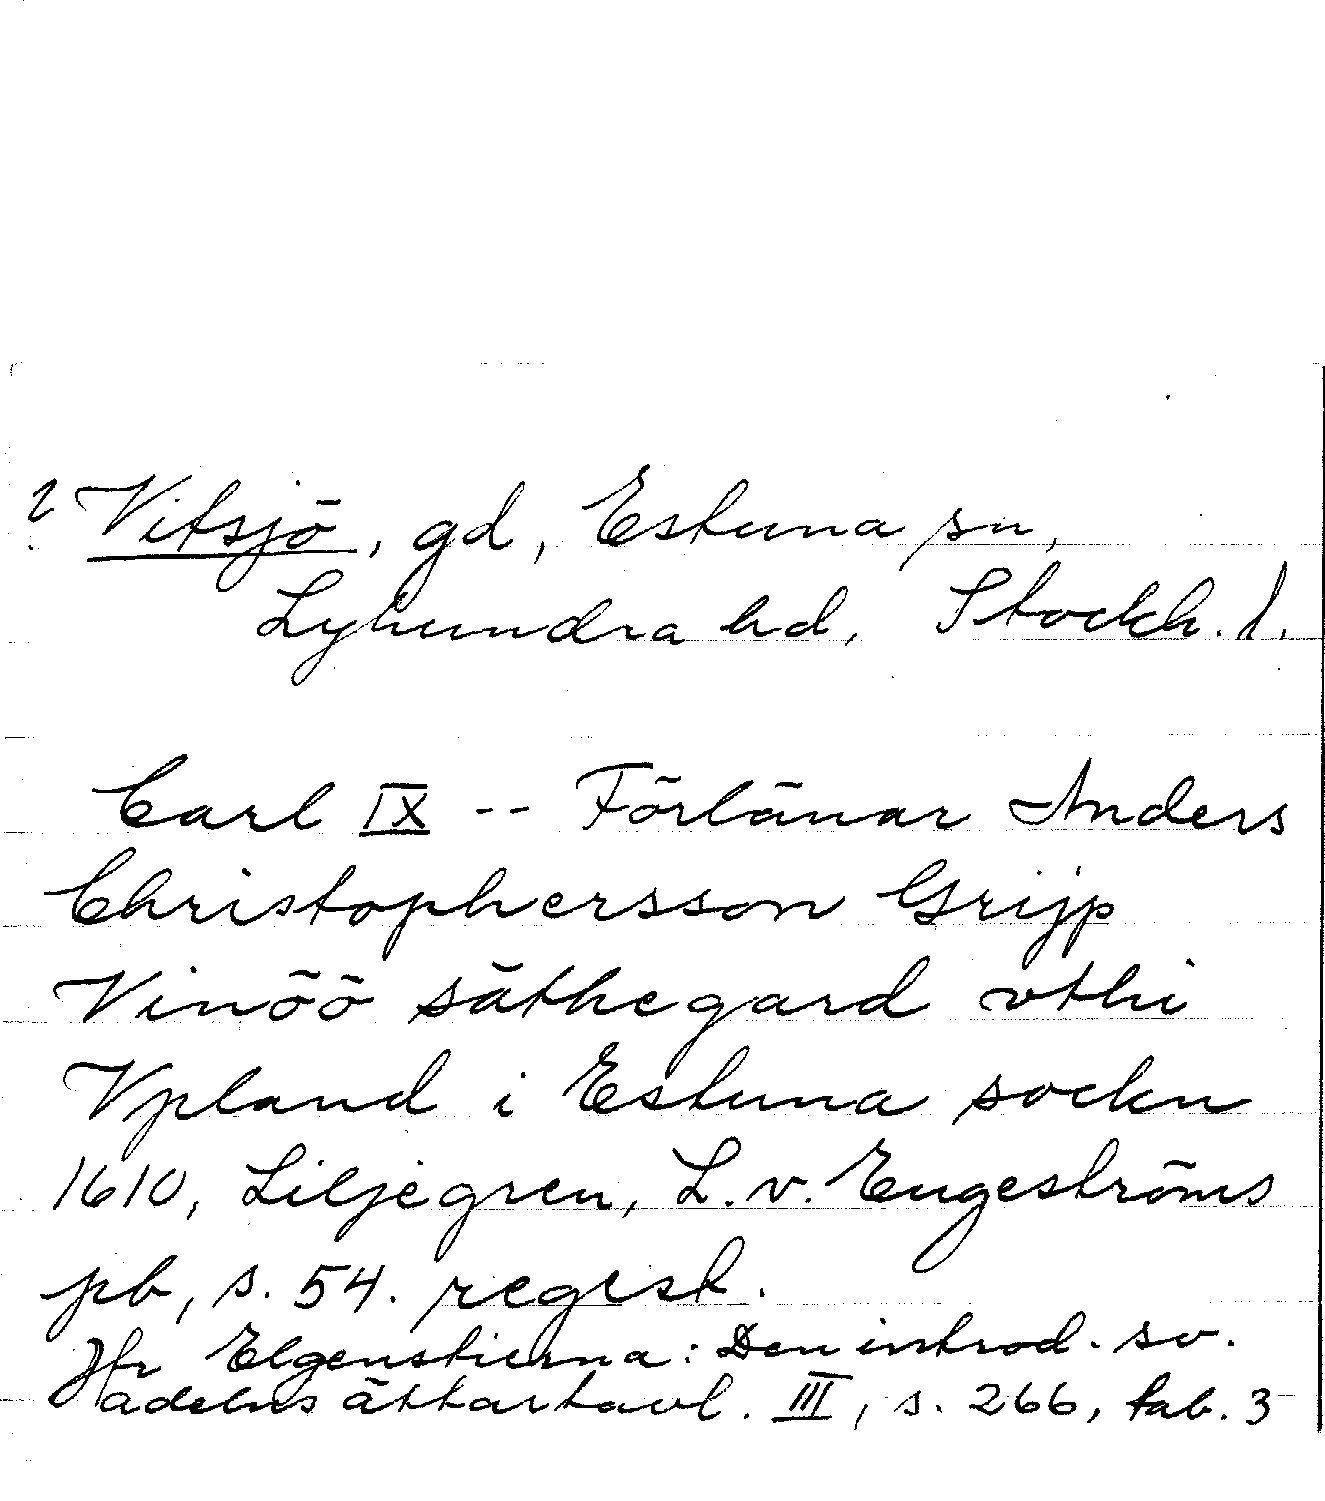 ? Vitsjö, gd, Estuna sn,
Lyhundra hd, Stockh. l.
Carl IX -- Förlänar Anders
Christophersson Grijp
Vinöö säthegard vthi
Vpland i Estuna sockn
1610, Liljegren, L. v. Engeströms
pb, s. 54. regist.
Jfr Elgenstierna: Den introd. sv.
adelns ättartavl. III, s. 266, tab. 3